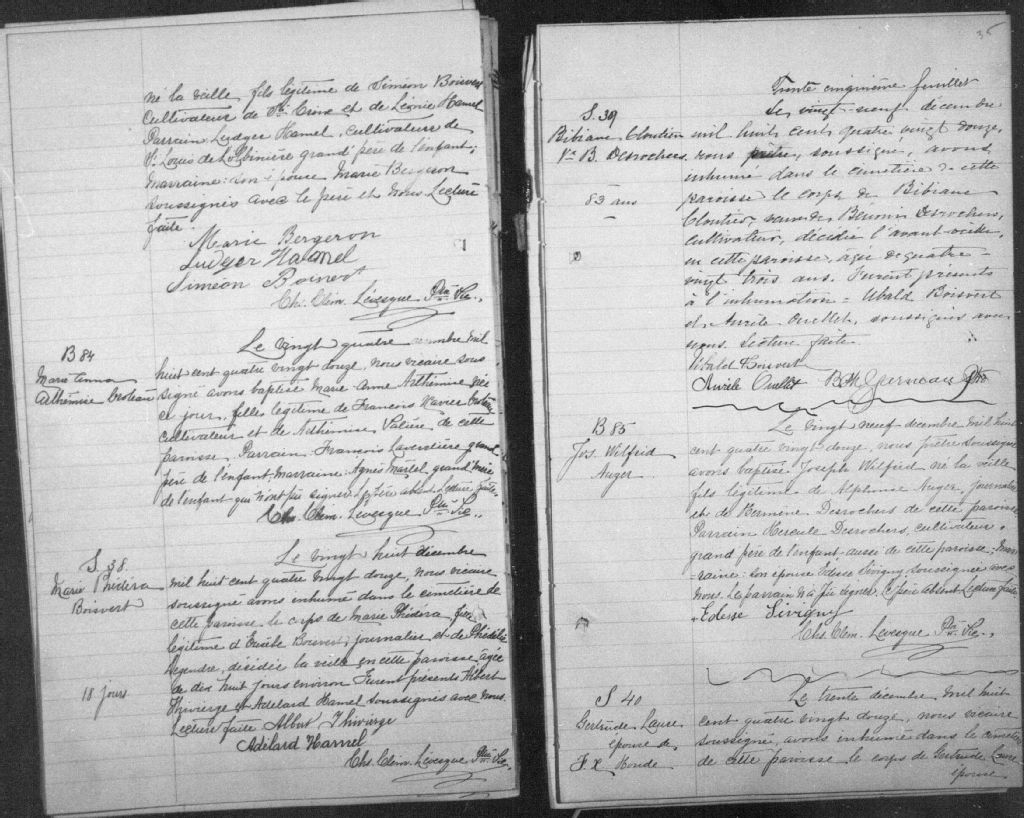 né la veille, fils légitime de Siméon Boisvert
Cultivateur de Ste Croix et de Léonie Hamel
Parrain Ludger Hamel, cultivateur de
St Louis de Lotbinière grand père de l'enfant,
Marraine: son épouse Marie Bergeron
soussignés avec le père et nous. Lecture
faite.
Marie Bergeron
Ludger Hamel
Siméon Boisvert
Chs. Clem. Lévesque Ptre Vic.
B 84
Marie Anna
Athémise Croteau
Le vingt quatre décembre mil
huit cent quatre vingt douze, nous vicaire sous
signé avons baptisé Marie-Anne Athémise née
ce jour, fille légitime de François Xavier Croteau
cultivateur et de Adthémise Valière de cette
paroisse. Parrain: François grand
père de l'enfant, Marraine: Agnès Martel, grand'mère
de l'enfant qui n'ont pu signer. Le père absent. Lecture faite.
Chs. Clem. Levesque Ptre Vic.
S. 38.
Marie Phédéra
Boisvert
18 jours
Le vingt huit décembre
mil huit cent quatre vingt douze, nous vicaire
soussigné avons inhumé dans le cimetière de
cette paroisse le corps de Marie Phédéra, fille
légitime d'Exeile Boisvert, journalier et de Phédélie
Legendre, décédée la veille en cette paroisse, agée
de dix huit jours environ. Furent présents Albert
Thivierge et Adélard Hamel soussignés avec nous.
Lecture faite Albert Thivierge
Adélard Hamel
Chs. Clem. Lévesque Ptre Vic.
35
Trente cinquième feuillet
S. 39
Bibiane Cloutier
Ve B. Desrochers
83 ans
Le vingt-neuf decembre
mil huit cent quatre vingt douze,
nous prêtre, soussigné, avons
inhumé dans le cimetière de cette
paroisse le corps de Bibiane
Cloutier, veuve de Bénonie Desrochers,
cultivateur, décédée l'avant-veille,
en cette paroisse, agée de quatre-
vingt trois ans. Furent présents
à l'inhumation = Ubald Boisvert
et Aurèle Ouellet, soussignés avec
nous. Lecture faite.
Ubald Boisvert
Aurèle Ouellet B. M. Gerneau Ptre
B 85
Jos. Wilfrid
Auger
Le vingt neuf décembre mil huit
cent quatre vingt douze, nous prêtre soussigné
avons baptisé Joseph Wilfrid né la veille
fils légitime de Alphonse Auger, journalier
et de Hermine Desrochers de cette paroisse
Parrain Hercule Desrochers, cultivateur,
grand père de l'enfant aussi de cette paroisse; Mar-
raine: son épouse Edesse Sivigny soussignée avec
nous. Le parrain n'a pu signer. Le père absent. Lecture faite
Edesse Sivigny
Chs. Clem. Levesque Ptre Vic.
S 40
Gertrude Laure
épouse de
F. X Boude
Le trente décembre mil huit
cent quatre vingt douze, nous vicaire
soussigné, avons inhumé dans le cimetière
de cette paroisse le corps de Gertrude Laure
épouse